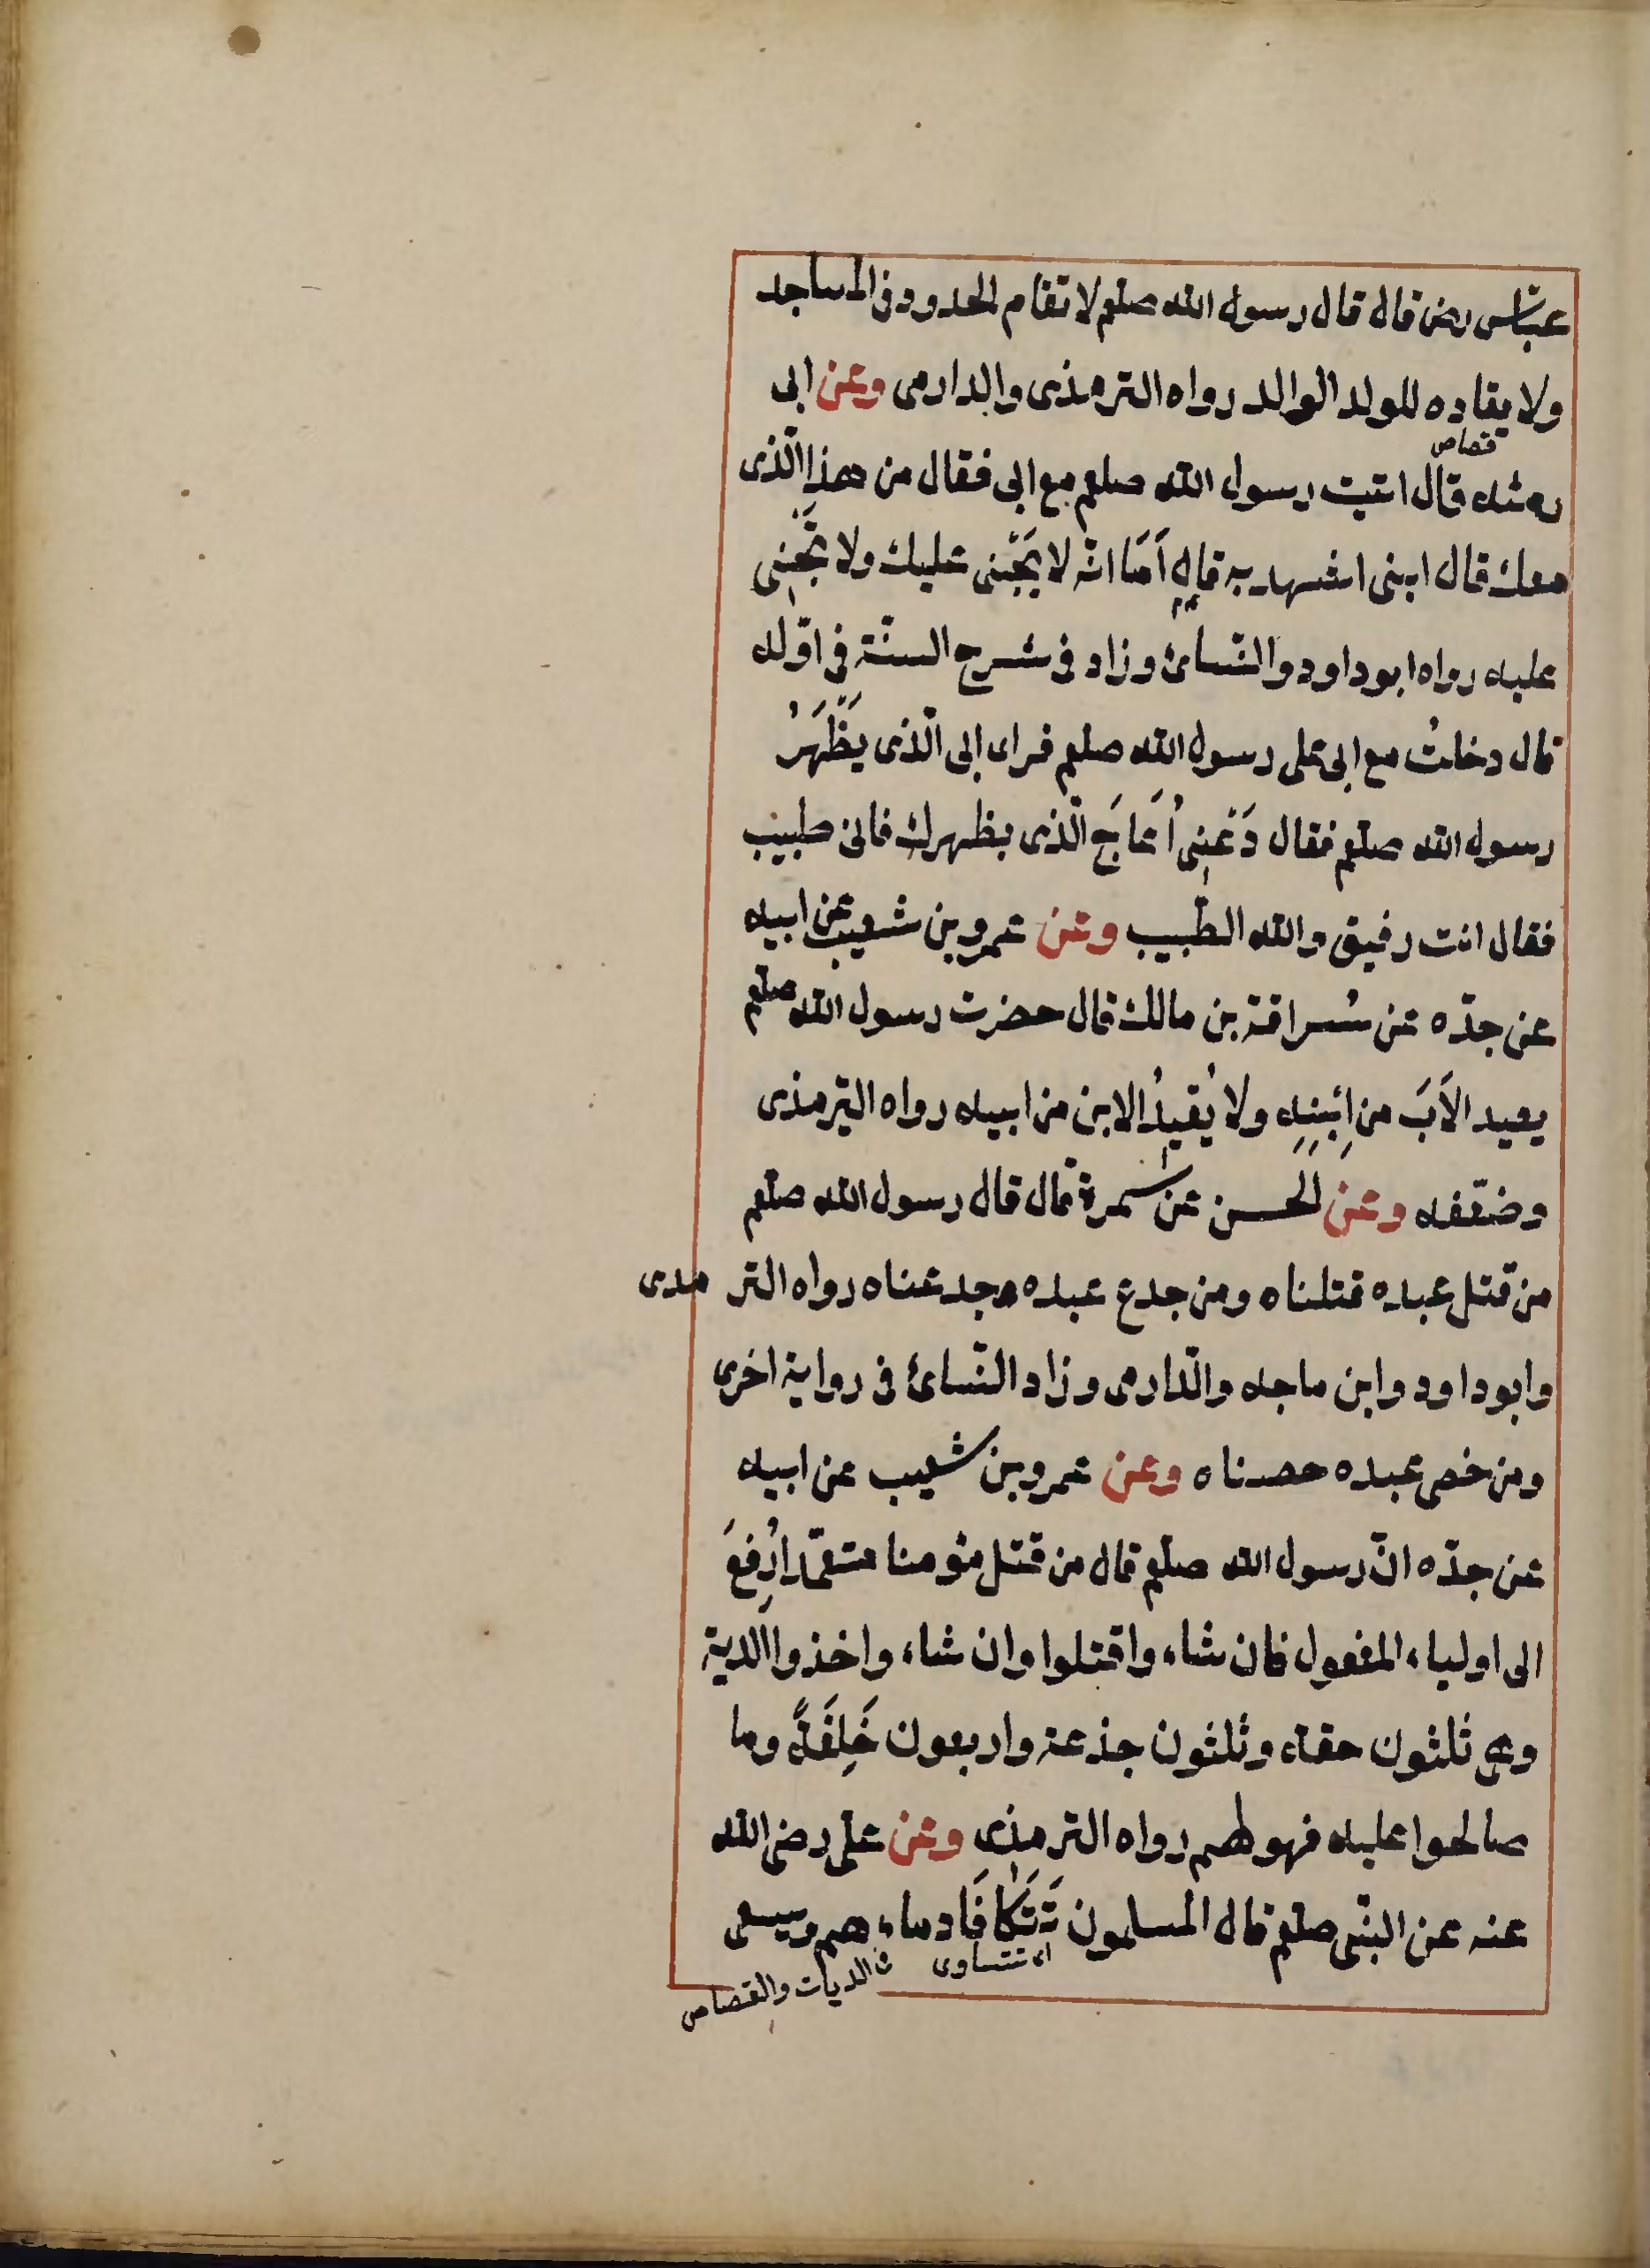 عبّاس رض قال قال رسول الله صلعم لا تقام الحدود فى المساجد
ولا يقاده للولد الوالد رواه الترمذى والدارمى وعن ابى
قصاص
رمثه قال اتيت رسول الله صلعم مع ابى فقال من هذا الّذى
معك قال ابنى اشهد به قال اَمَا انّه لا يَجْنى عليك ولا تَجْنى
عليه رواه ابو داود والنّسائ وزاد فى شرح السنّة فى اوّله
قال دخلتُ مع ابى على رسول الله صلعم فراى ابى الّذى يَظَّهَرُ
رسول الله صلعم فقال دَعْنى اُعَاجَ الّذى بظهرك فانى طبيب
فقال انت رفيق والله الطّبيب وعن عمرو بن شعيب عن ابيه
عن جدّه عن سُراقة بن مالك قال حضرت رسول الله صلعم
يعيد الاَبَ من اِبْنِهِ ولا يُقيدُ الابن من ابيه رواه الترمذى
وضعّفه وعن الحسن عن سمرة قال قال رسول الله صلعم
من قتل عبده قتلناه ومن جدع عبده جدعناه رواه التر مدى
وابو داود وابن ماجه والدّارمى وزاد النّسائ فى رواية اخرى
ومن خصى عبده حصناه وعن عمرو بن شعيب عن ابيه
عن جدّه انّ رسول الله صلعم قال من قتل مؤمنا متعمّدا رُفِعَ
الى اولياء المفعول فان شاء واقتلوا وان شاء واخذوا الدية
وهى ثلثون حقة وثلثون جذعة واربعون خَلِفَةً وما
صالحوا عليه فهو لهم رواه الترمذى وعن علىّ رضى الله
عنه عن النبّى صلعم قال المسلمون تَتَكافَا دماء هم ويسعى
اى تتساوى فى الديات والقصاص